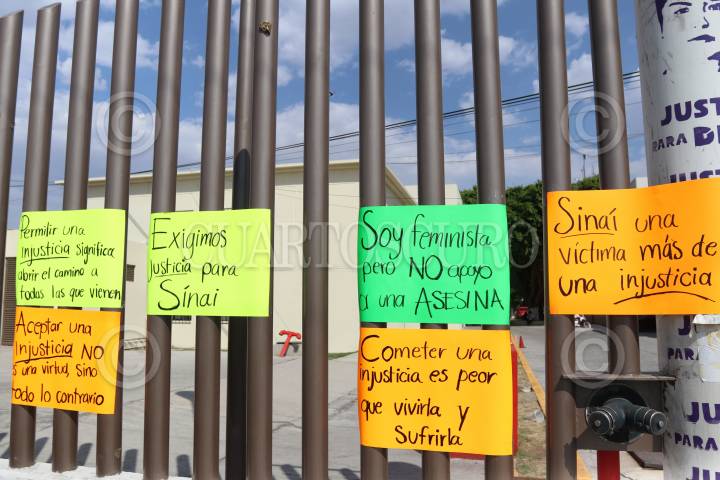 Permitir una
injusticia significa
abrir el camino a
todas las que vienen
Aceptar una
Injusticia NO
es una virtud, sino
todo lo contrario
Exigimos
justicia para
Sínai
Soy feminista
pero NO apoyo
a una ASESINA
Cometer una
injusticia es peor
que vivirla y
Sufrirla
Sinaí una
víctima más de
una injusticia
JUST
PARA D
JUST
JU
PARA
JU
PARA D
JU
CUARTOSCURO